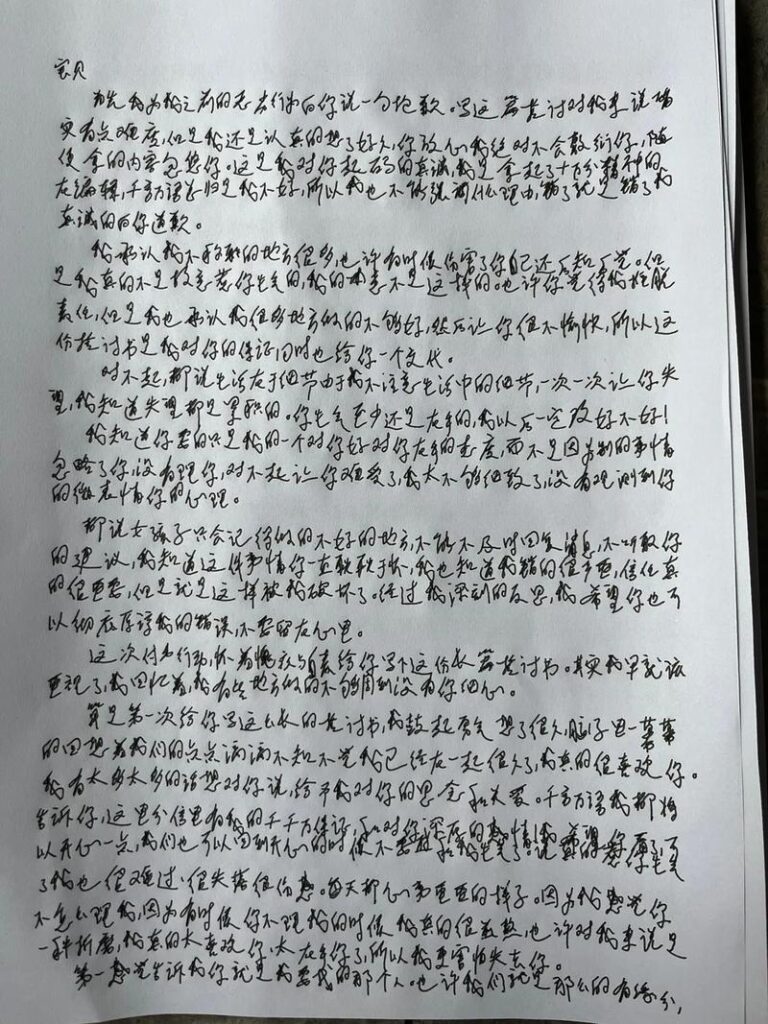 宝贝
首先我为我之前的态度行为向你说一句抱歉。写这篇检讨对我来说确
实有点难度,但是我还是认真的想了好久,你放心我绝对不会敷衍你,随
便拿的内容忽悠你。这是我对你起码的真诚,我是拿起了十万分精神的
在编辑,千言万语总归是我不好,所以我也不能强调什么理由,错了就是错了我
真诚的向你道歉。
我承认我不称职的地方很多,也许有时候伤害了你自己还不知不觉。但
是我真的不是故意惹你生气的,我的本意不是这样的。也许你觉得我推脱
责任,但是我也承认我很多地方做的不够好,然后让你很不愉快,所以这
份检讨书是我对你的保证,同时也给你一个交代。
对不起,都说生活在于细节由于我不注意生活中的细节,一次一次让你失
望,我知道失望都是累积的。你生气至少还是在乎的,我以后一定改好不好!
我知道你要的只是我的一个对你好对你在乎的态度,而不是因为别的事情
忽略了你,没有理你,对不起让你难受了,我太不够细致了,没有观测到你
的微表情你的心理。
都说女孩子只会记得做的不好的地方,不能不及时回复消息,不听取你
的建议,我知道这件事情你一直耿耿于怀,我也知道我错的很严重,信任真
的很重要,但是就是这样被我破坏了。经过我深刻的反思,我希望你也可
以彻底原谅我的错误,不要留在心里。
这次付出行动,怀着愧疚与自责给你写下这份长篇检讨书。其实我早就该
重视了,我回忆着,我有些地方做的不够周到没有你细心。
算是第一次给你写这么长的检讨书,我鼓起勇气想了很久,脑子里一幕幕
的回想着我们的点点滴滴不知不觉我已经在一起很久了,我真的很喜欢你。
我有太多太多的话想对你说,给予我对你的思念和关爱。千言万语我都想
告诉你,这里分信里有我的千千万保证,和对你深厚的热情
以开心一点,我们也可以回到开心的时候
了我也很难过,很失落很伤感。每天都心事重重的样子。因为我感觉你
不怎么理我,因为有时候你不理我的时候我真的很煎熬,也许对我来说是
一种折磨,我真的太喜欢你,太在乎你了,所以我更害怕失去你。
第一感觉告诉我你就是我要找的那个人。也许我们就是那么的有缘分,